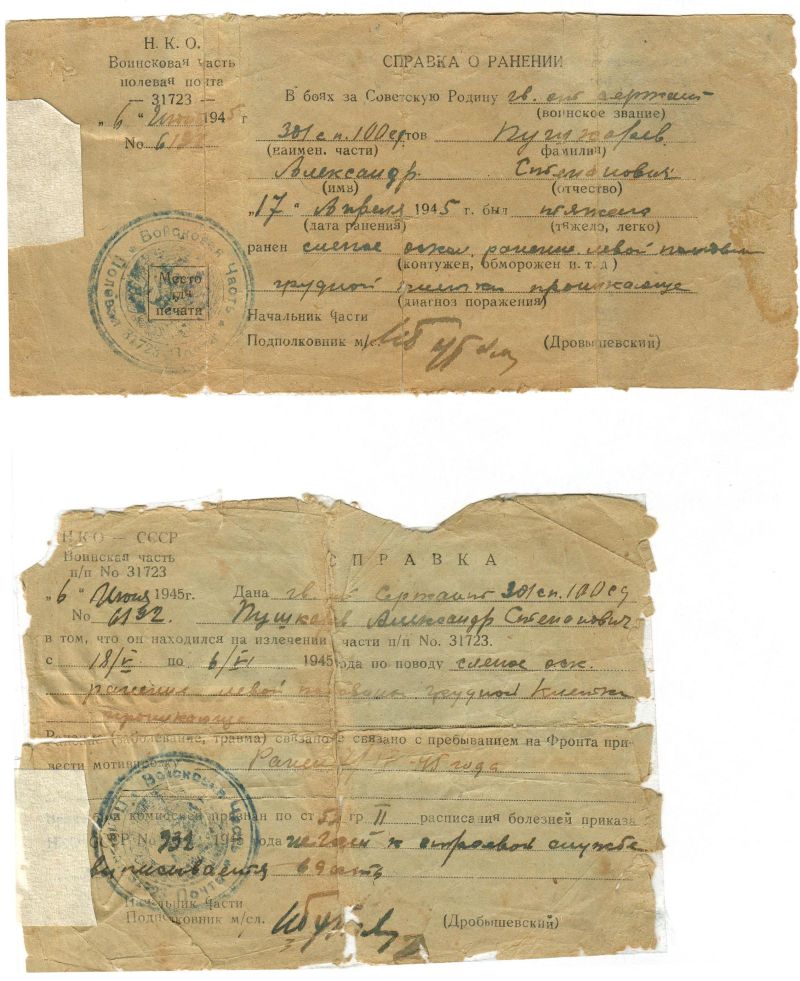 Н. К. О.
Воинсковая часть
полевая почта
— 31723 —
„ 6 “ Июня 1945 г
No 6192
СПРАВКА О РАНЕНИИ
В боях за Советскую Родину гв. ст. сержант
(воинское звание)
301 сп. 100 сд тов
(наимен. части) фамилии)
Александр Степанович
(имя) (отчество)
„17“ Апреля 1945 г. был тяжело
(дата ранения) (тяжело, легко)
ранен слепое оскол. ранение левой половин
(контужен, обморожен и. т. д )
грудной клетки проникающе
(диагноз поражения)
Начальник Части
Подполковник м/сл. (Дровышевский)
Место
для
печати
Войсковая Часть
31723
Н.КО — СССР
Воинская часть
п/п No 31723
„6“ Июня 1945г.
No 6192.
СПРАВКА
Дана гв. ст. Сержант 301 сп. 100 сд
Пушкарев Александр Степанович
в том, что он находился на излечении части п/п No. 31723.
с 18/V по 6/VI 1945 года по поводу слепое оск.
ранения левой половины грудной клетки
проникающе
Ранение (заболевание, травма) связано е связано с пребыванием на Фронта при-
вести мотивировку Ранен 45 года
комиссией признан по ст 5 гр II расписания болезней приказа
СССР No 336 194 года негоден к строевой службе
выписывается в часть
Начальник Части
Подполковник м/сл. (Дробышевский)
Войсковая Часть
Почта